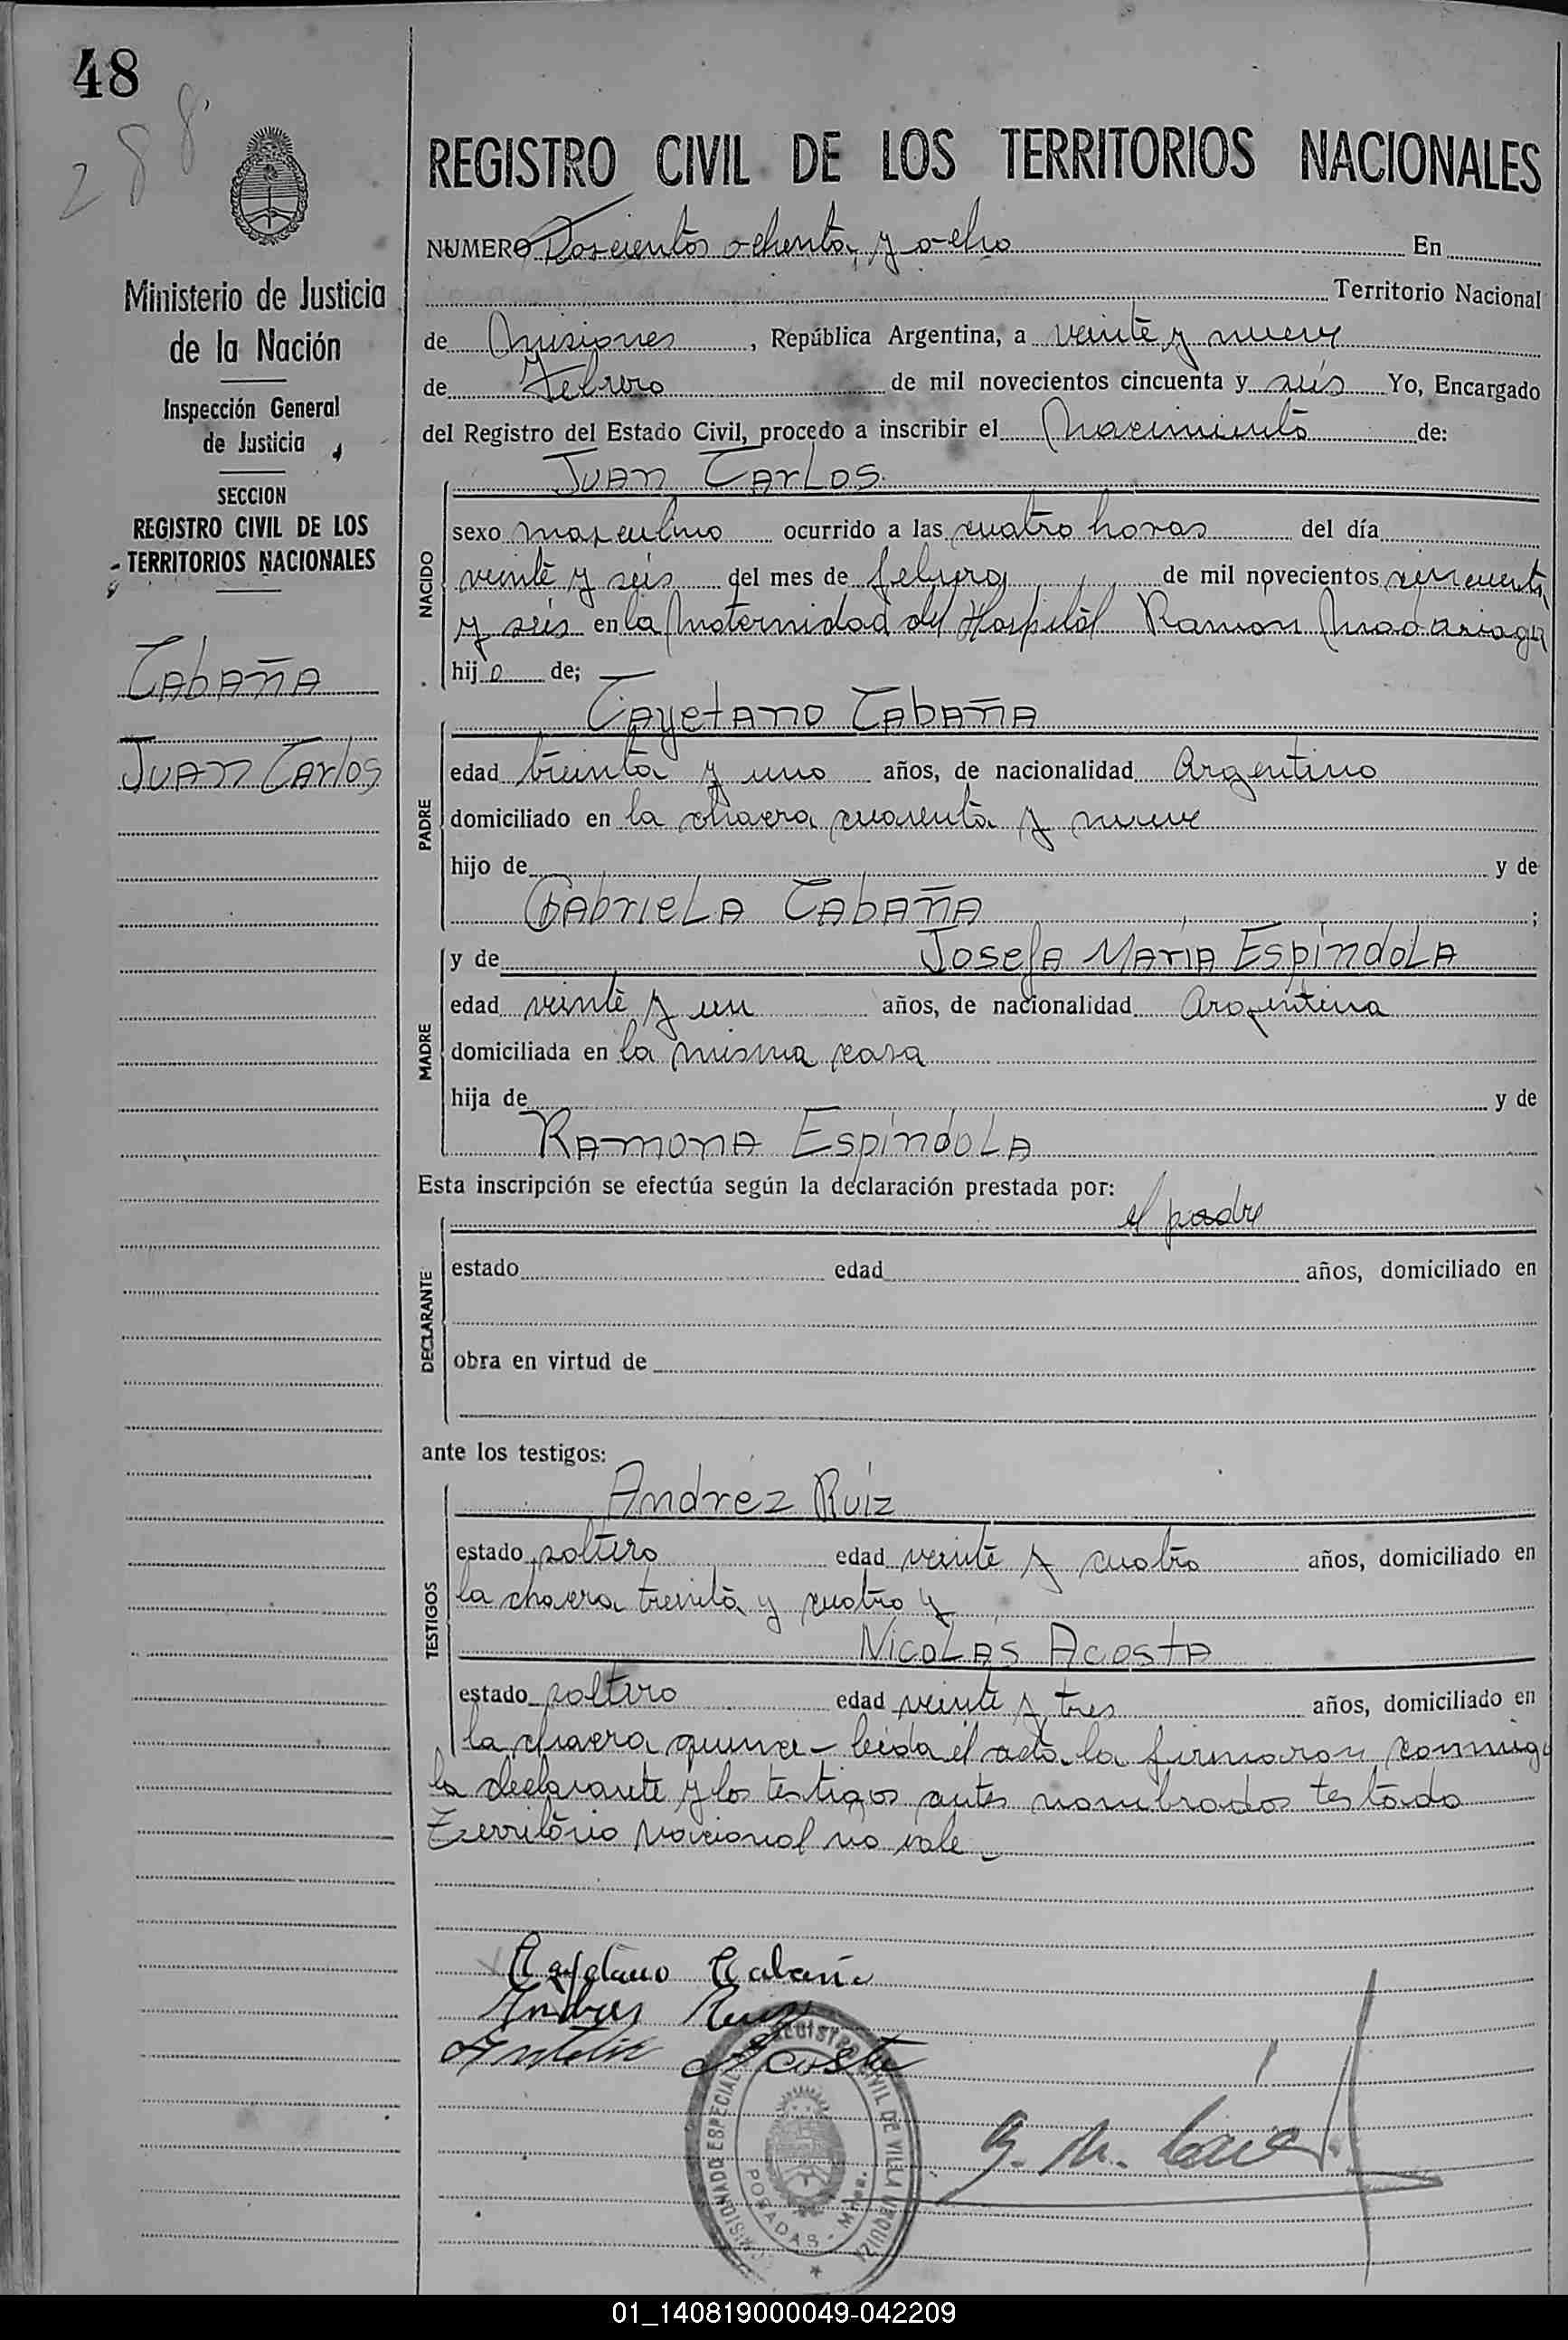 48
288
Ministerio de Justicia
de la Nación
Inspección General
de Justicia
SECCION
REGISTRO CIVIL DE LOS
TERRITORIOS NACIONALES
Cabaña
Juan Carlos
REGISTRO CIVIL DE LOS TERRITORIOS NACIONALES
NUMERO Doscientos ochenta y ocho En
Territorio Nacional
de Misiones, República Argentina, a veinte y nueve
de Febrero de mil novecientos cincuenta y seis Yo, Encargado
del Registro del Estado Civil, procedo a inscribir el Nacimiento de:
Juan Carlos
NACIDO
sexo masculino ocurrido a las cuatro horas del día
veinte y seis del mes de febrero de mil novecientos cincuenta
y seis en la Maternidad del Hospital Ramon Madariaga
hijo de;
Cayetano Cabaña
PADRE
edad treinta y uno años, de nacionalidad Argentino
domiciliado en la chacra cuarenta y nueve
hijo de y de
Gabriela Cabaña ;
y de Josefa María Espíndola
MADRE
edad veinte y un años, de nacionalidad Argentina
domiciliada en la misma casa
hija de y de
Ramona Espíndola
Esta inscripción se efectúa según la declaración prestada por:
el padre
DECLARANTE
estado edad años, domiciliado en
obra en virtud de
ante los testigos:
Andréz Ruiz
TESTIGOS
estado soltero edad veinte y cuatro años, domiciliado en
la chacra treinta y cuatro y
Nicolás Acosta
estado soltero edad veinte y tres años, domiciliado en
la chacra quince - leida el acta la firmaron conmigo
la declarante y los testigos antes nombrados testado
Territorio Nacional no vale -
Cayetano Cabaña
Andres Ruiz
Acosta
REGISTRO CIVIL DE VILLA URQUIZA
POSADAS - Mnes.
G. M.
01_140819000049-042209